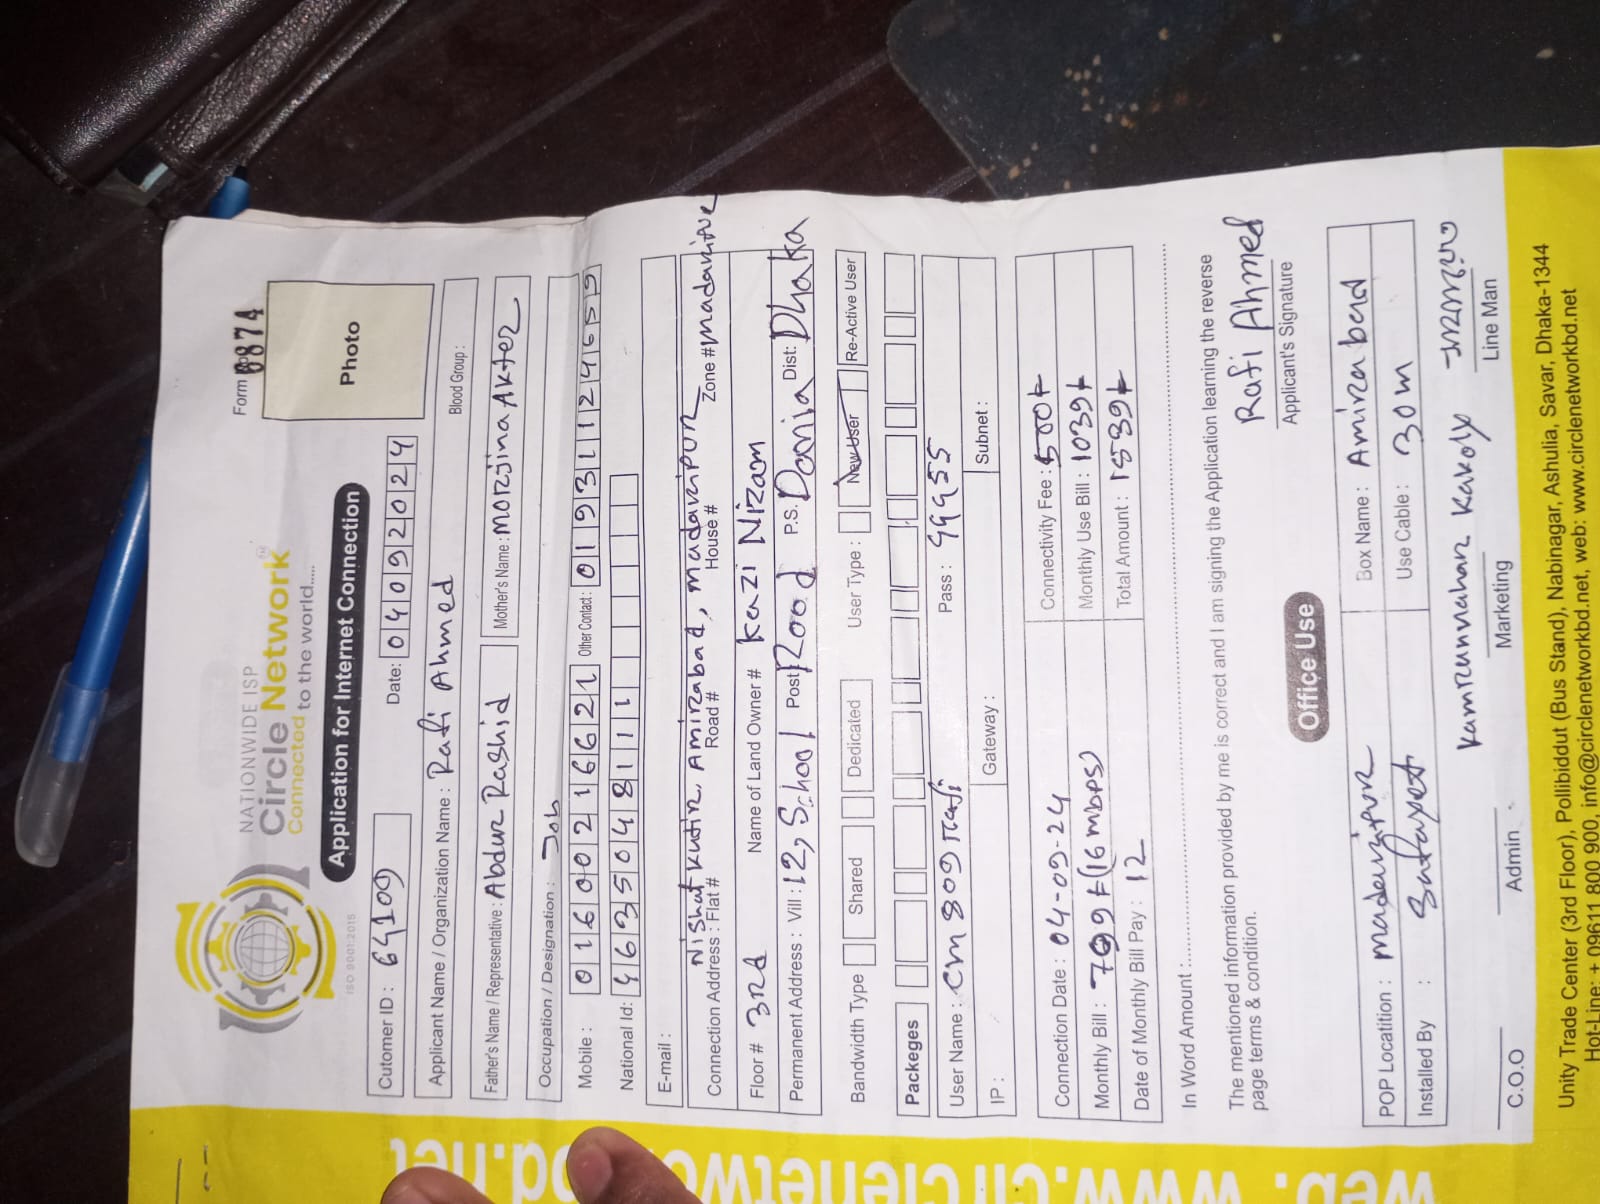 NATIONWIDE ISP
Circle Network
Connected to the world.....
ISO 9001:2015
Form
6874
Application for Internet Connection
Photo
Cutomer ID : 64109
Date: 04092024
Applicant Name / Organization Name : Rafi Ahmed
Blood Group :
Father's Name / Representative : Abdur Rashid
Mother's Name : Morzjina Akter
Occupation / Designation : Job
Mobile : 01600216621
Other Contact: 01931124659
National Id: 4635048111
E-mail :
Nishat Kutir, Amirabad, madaripur
Connection Address : Flat # Road # House # Zone # madaripur
Floor # 3rd Name of Land Owner # Kazi Nizam
Permanent Address : Vill : 12, School Post Rood P.S. Dania Dist: Dhaka
Bandwidth Type Shared Dedicated User Type : New User Re-Active User
Packeges
User Name : cm809rafi Pass : 99955
IP : Gateway : Subnet :
Connection Date : 04-09-24 Connectivity Fee : 500৳
Monthly Bill : 799৳ (16 mbps) Monthly Use Bill : 1039৳
Date of Monthly Bill Pay : 12 Total Amount : 1539৳
In Word Amount :
The mentioned information provided by me is correct and I am signing the Application learning the reverse
page terms & condition.
Rafi Ahmed
Applicant's Signature
Office Use
POP Locatition : madaripur Box Name : Amirabad
Installed By : Use Cable : 30m
Kamrunnahar Kakoly
C.O.O Admin Marketing Line Man
Unity Trade Center (3rd Floor), Pollibiddut (Bus Stand), Nabinagar, Ashulia, Savar, Dhaka-1344
Hot-Line: + 09611 800 900, info@circlenetworkbd.net, web: www.circlenetworkbd.net